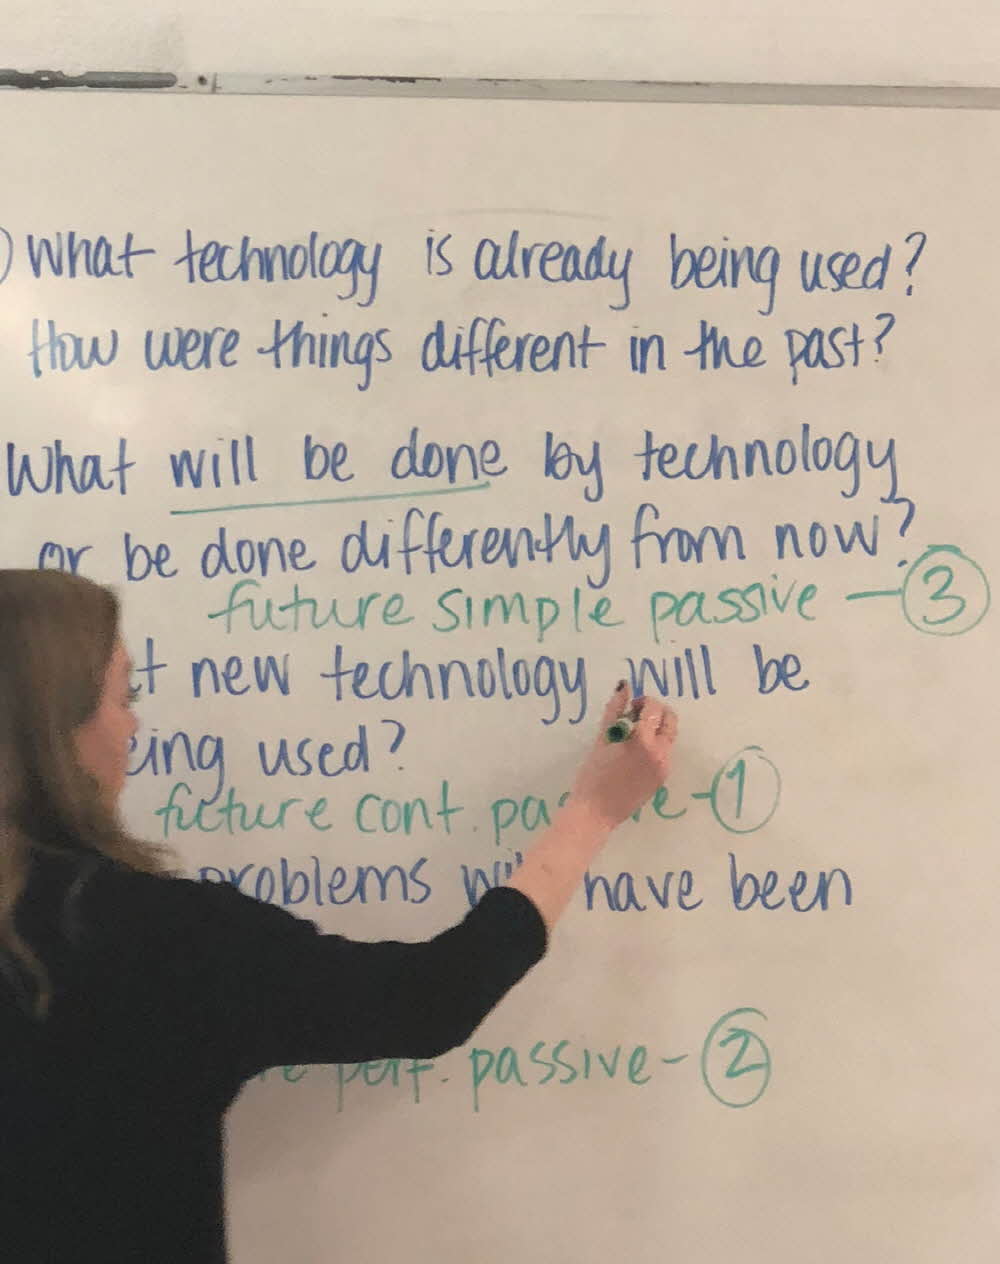 ) What technology is already being used?
How were things different in the past?
What will be done by technology
or be done differently from now?
future simple passive - 3
new technology will be
used?
future cont. - 1
problems have been
perf. passive - 2